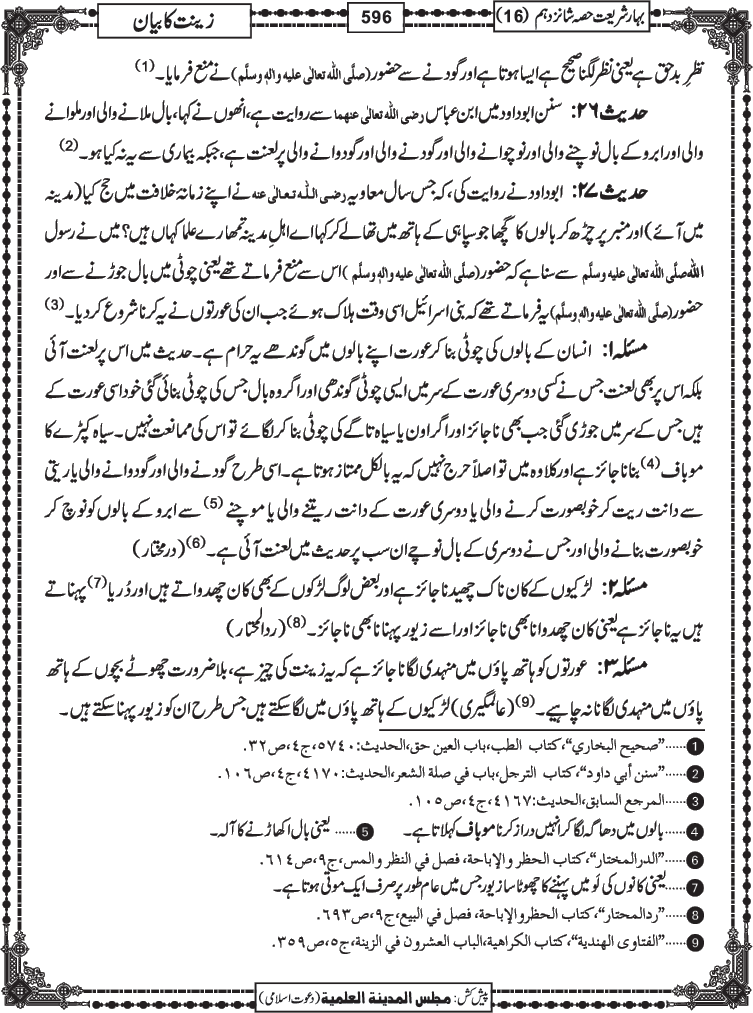 بہارِشریعت حصہ شانزدہم (16)
596
زینت کا بیان
نظرِ بد حق ہے یعنی نظر لگنا صحیح ہے ایسا ہوتا ہے اور گودنے سے حضور (صلَّی اللہ تعالٰی علیہ واٰلہٖ وسلَّم) نے منع فرمایا۔(1)
حدیث ۲۶: سنن ابوداود میں ابن عباس رضی اللہ تعالٰی عنہما سے روایت ہے، انھوں نے کہا، بال ملانے والی اور ملوانے
والی اور ابرو کے بال نوچنے والی اور نوچوانے والی اور گودنے والی اور گودوانے والی پر لعنت ہے، جبکہ بیماری سے یہ نہ کیا ہو۔(2)
حدیث ۲۷: ابوداود نے روایت کی، کہ جس سال معاویہ رضی اللہ تعالٰی عنہ نے اپنے زمانۂ خلافت میں حج کیا (مدینہ
میں آئے) اور منبر پر چڑھ کر بالوں کا گچھا جو سپاہی کے ہاتھ میں تھا لے کر کہا اے اہلِ مدینہ تمھارے علما کہاں ہیں؟ میں نے رسول
اللہ صلَّی اللہ تعالٰی علیہ وسلَّم سے سنا ہے کہ حضور (صلَّی اللہ تعالٰی علیہ واٰلہٖ وسلَّم) اس سے منع فرماتے تھے یعنی چوٹی میں بال جوڑنے سے اور
حضور (صلَّی اللہ تعالٰی علیہ واٰلہ وسلَّم) یہ فرماتے تھے کہ بنی اسرائیل اسی وقت ہلاک ہوئے جب ان کی عورتوں نے یہ کرنا شروع کر دیا۔(3)
مسئلہ ۱: انسان کے بالوں کی چوٹی بنا کر عورت اپنے بالوں میں گوندھے یہ حرام ہے۔ حدیث میں اس پر لعنت آئی
بلکہ اس پر بھی لعنت جس نے کسی دوسری عورت کے سر میں ایسی چوٹی گوندھی اور اگر وہ بال جس کی چوٹی بنائی گئی خود اسی عورت کے
ہیں جس کے سر میں جوڑی گئی جب بھی ناجائز اور اگر اون یا سیاہ تاگے کی چوٹی بنا کر لگائے تو اس کی ممانعت نہیں۔ سیاہ کپڑے کا
موباف(4) بنانا جائز ہے اور کلاوہ میں تو اصلاً حرج نہیں کہ یہ بالکل ممتاز ہوتا ہے۔ اسی طرح گودنے والی اور گودوانے والی یا ریتی
سے دانت ریت کر خوبصورت کرنے والی یا دوسری عورت کے دانت ریتنے والی یا موچنے(5) سے ابرو کے بالوں کو نوچ کر
خوبصورت بنانے والی اور جس نے دوسری کے بال نوچے ان سب پر حدیث میں لعنت آئی ہے۔(6) (درمختار)
مسئلہ ۲: لڑکیوں کے کان ناک چھیدنا جائز ہے اور بعض لوگ لڑکوں کے بھی کان چھدواتے ہیں اور دُریا(7) پہناتے
ہیں یہ ناجائز ہے یعنی کان چھدوانا بھی ناجائز اور اسے زیور پہنانا بھی ناجائز۔(8) (ردالمحتار)
مسئلہ ۳: عورتوں کو ہاتھ پاؤں میں منہدی لگانا جائز ہے کہ یہ زینت کی چیز ہے، بلاضرورت چھوٹے بچوں کے ہاتھ
پاؤں میں منہدی لگانا نہ چاہیے۔(9) (عالمگیری) لڑکیوں کے ہاتھ پاؤں میں لگا سکتے ہیں جس طرح ان کو زیور پہنا سکتے ہیں۔
1 ......"صحیح البخاري"، کتاب الطب، باب العین حق، الحدیث: ۵۷۴۰، ج۴، ص۳۲.
2 ......"سنن أبي داود"، کتاب الترجل، باب في صلة الشعر، الحدیث: ۴۱۷۰، ج۴، ص۱۰۶.
3 ......المرجع السابق، الحدیث: ۴۱۶۷، ج۴، ص۱۰۵.
4 ......بالوں میں دھاگہ لگا کر انہیں دراز کرنا موباف کہلاتا ہے۔ 5 ......یعنی بال اکھاڑنے کا آلہ۔
6 ......"الدرالمختار"، کتاب الحظر والإباحة، فصل في النظر والمس، ج۹، ص۶۱۴.
7 ......یعنی کانوں کی لَو میں پہننے کا چھوٹا سا زیور جس میں عام طور پر صرف ایک موتی ہوتا ہے۔
8 ......"ردالمحتار"، کتاب الحظر والإباحة، فصل في البیع، ج۹، ص۶۹۳.
9 ......"الفتاوی الهندیة"، کتاب الکراهیة، الباب العشرون في الزینة، ج۵، ص۳۵۹.
پیش کش: مجلس المدینة العلمیة (دعوت اسلامی)